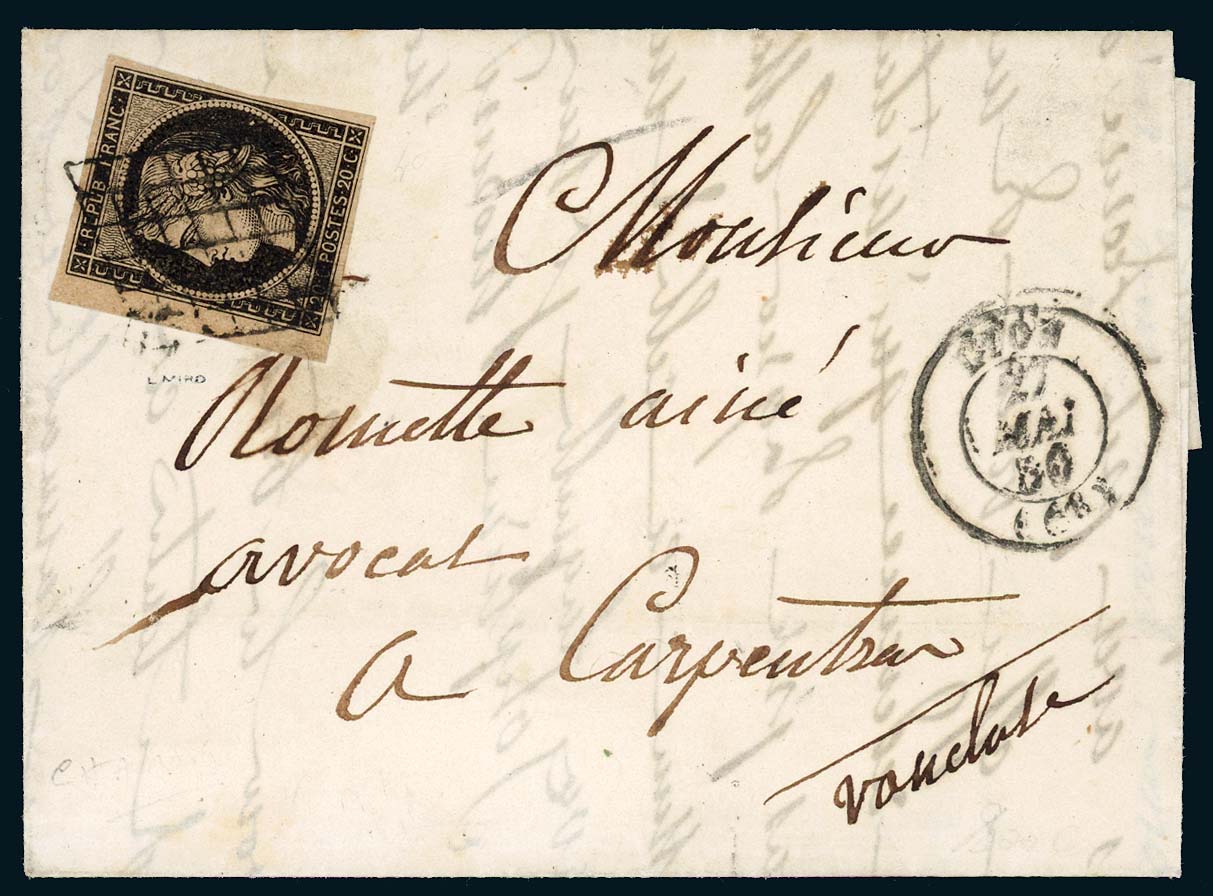 REPUB. FRANC.
20.C. POSTES.20.C.
L. MIRO
Monsieur
Romette ainé
avocat
a Carpentras
vaucluse
LYON
27
MAI
50
(68)